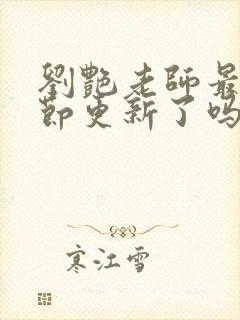 劉艷老師最
節更新了嗎
寒江雪